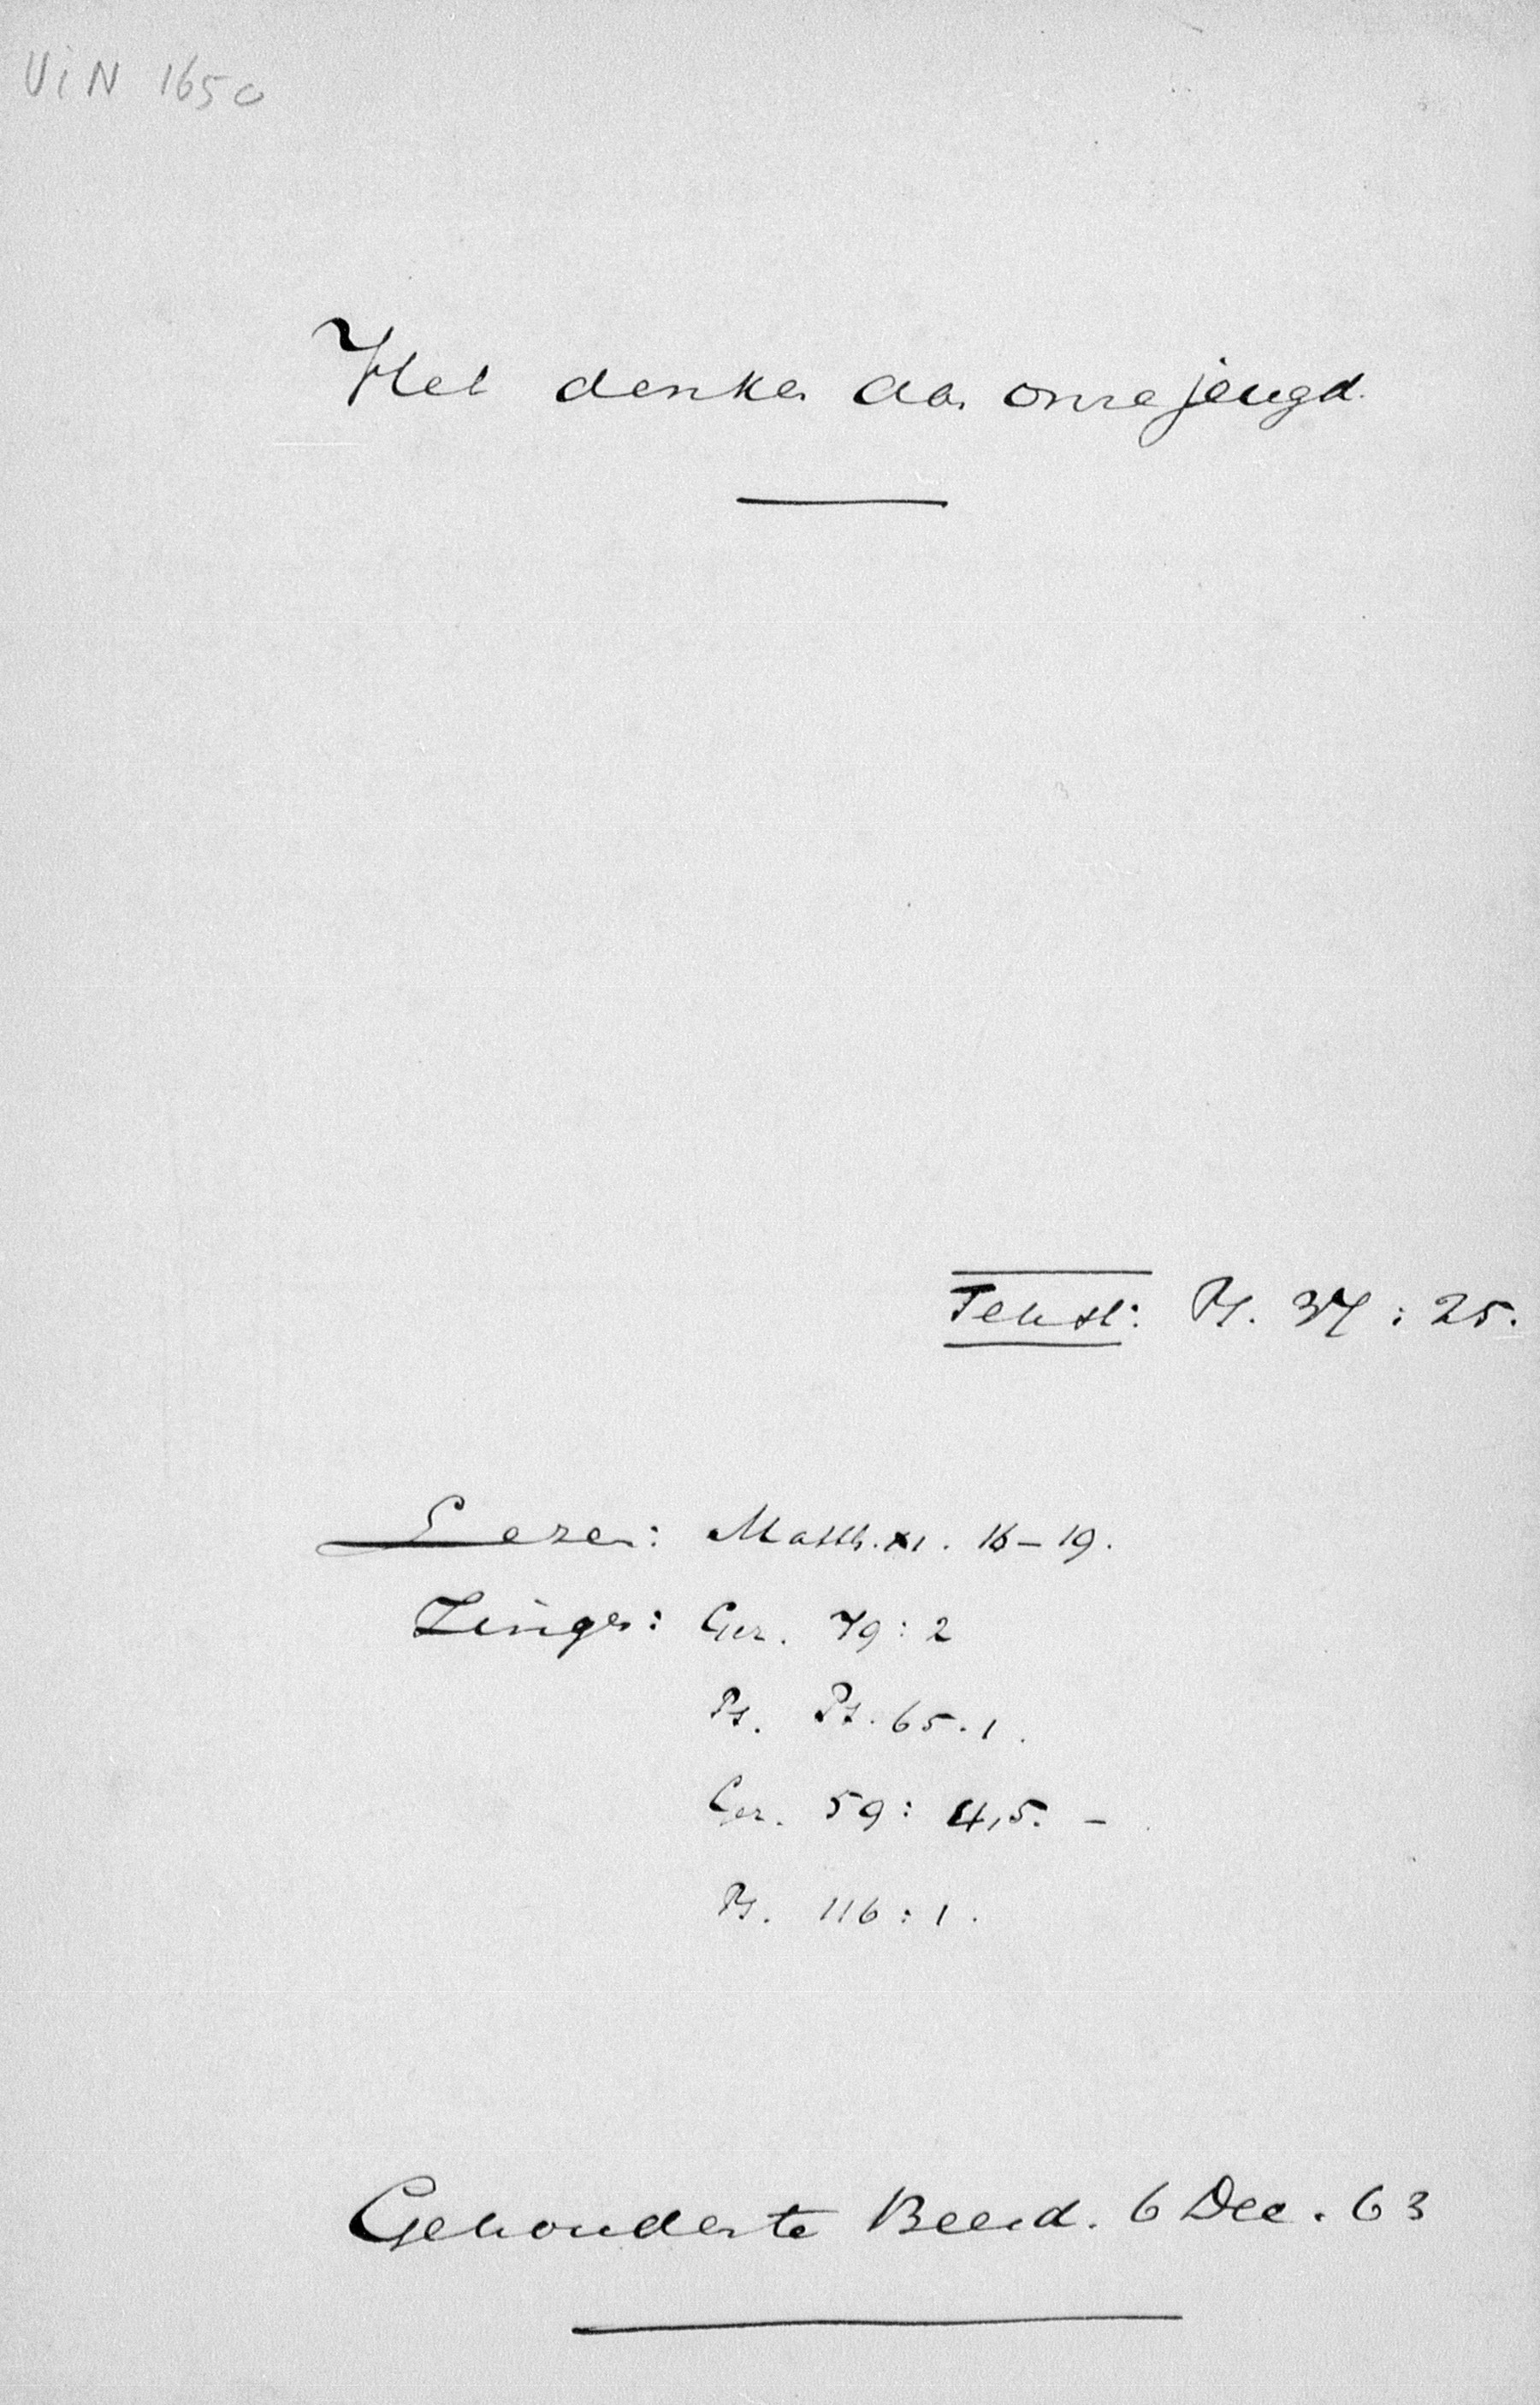 ViN 1650
Het denken aan onze jeugd.
Tekst: Ps. 37 : 25.
Lezen: Matth. XI. 16 – 19.
Zingen: Gez. 79 : 2
Ps. Ps. 65. 1.
Gez. 59 : 4,5. –
Ps. 116 : 1.
Gehouden te Beesd. 6 Dec. 63